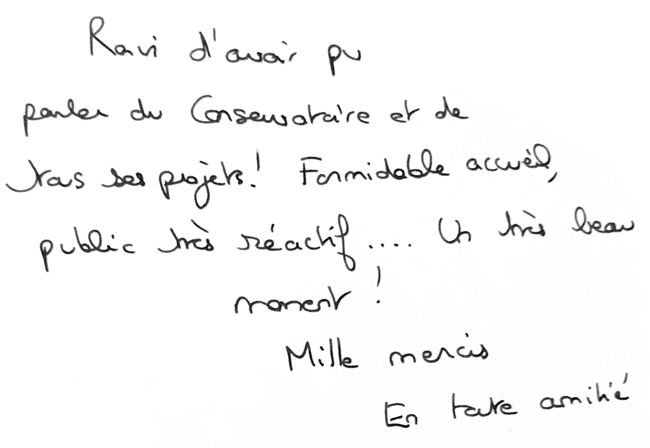 Ravi d'avoir pu
parler du Conservatoire et de
tous ses projets! Formidable accueil,
public très réactif.... Un très beau
moment !
Mille mercis
En toute amitié